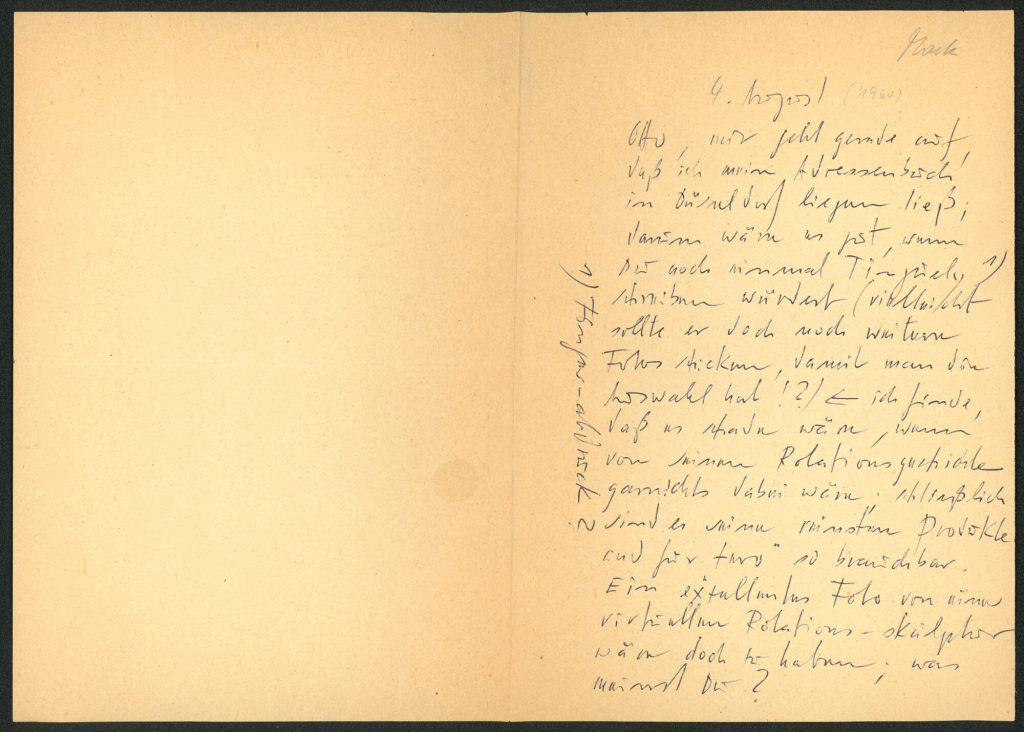 Mack
4. August (1960)
Otto, mir geht gerade auf,
daß ich mein Adressenbuch
in Düsseldorf liegen ließ;
darum wäre es gut, wenn
Du noch einmal Tinguely 1)
schreiben würdest (vielleicht
sollte er doch noch weitere
Fotos schicken, damit man die
Auswahl hat !?) ← ich finde,
daß es schade wäre, wenn
von seinen Rotations
garnichts dabei wäre; schließlich
sind es seine reinsten Produkte
und für "zero" so brauchbar.
Ein exzellentes Foto von einer
virtuellen Rotations-skulptur
wäre doch zu haben; was
meinst Du?
1) Fingerabdruck?